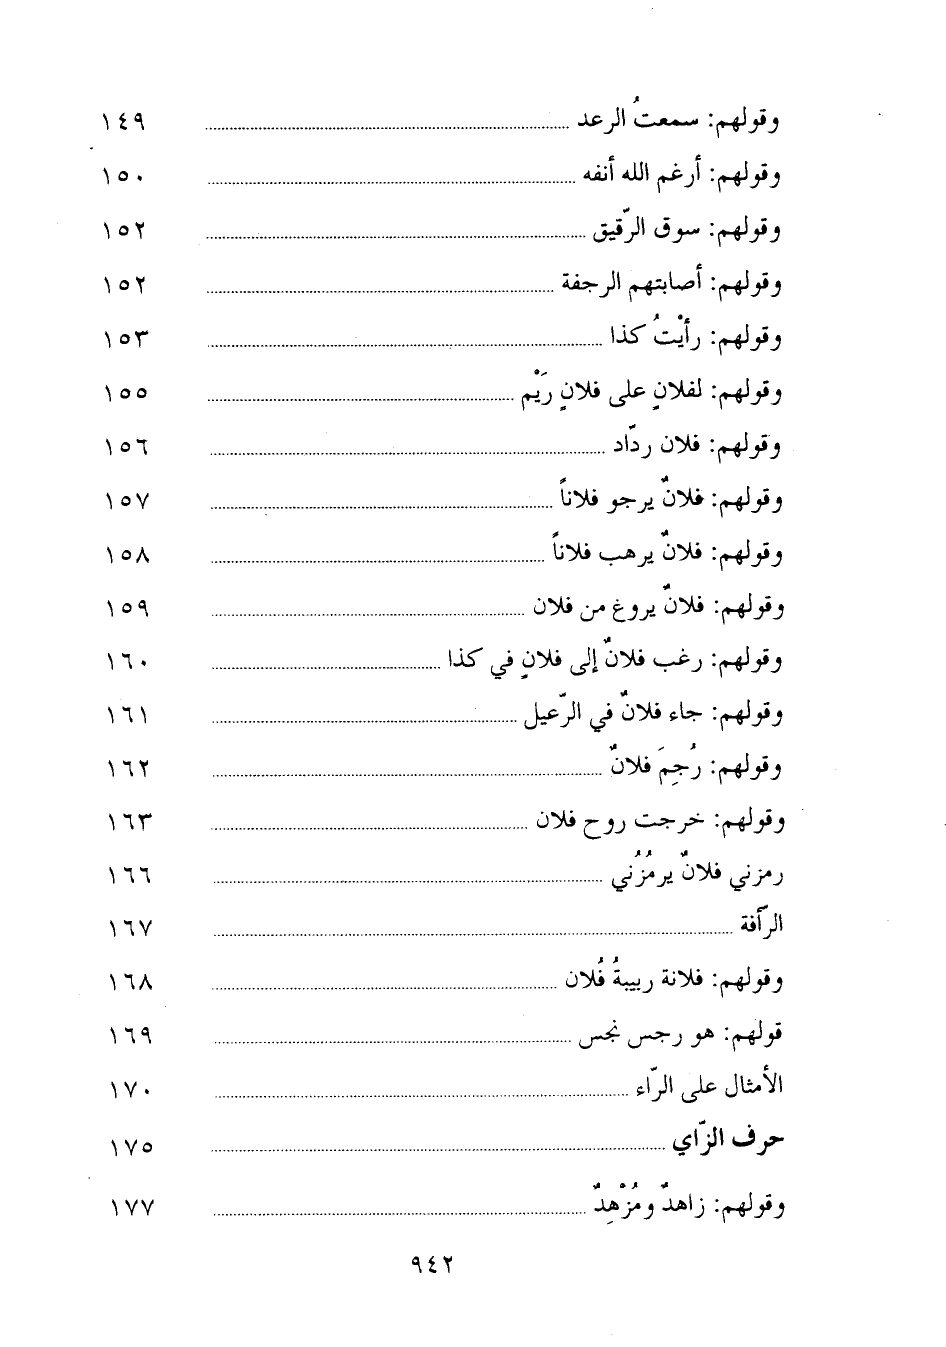 وقولهم: سمعتُ الرعد ........ ١٤٩
وقولهم: أرغم الله أنفه ........ ١٥٠
وقولهم: سوق الرّقيق ........ ١٥٢
وقولهم: أصابتهم الرجفة ........ ١٥٢
وقولهم: رأيْتُ كذا ........ ١٥٣
وقولهم: لفلانٍ على فلانٍ رَيْم ........ ١٥٥
وقولهم: فلان ردّاد ........ ١٥٦
وقولهم: فلانٌ يرجو فلاناً ........ ١٥٧
وقولهم: فلانٌ يرهب فلاناً ........ ١٥٨
وقولهم: فلانٌ يروغ من فلان ........ ١٥٩
وقولهم: رغب فلانٌ إلى فلانٍ في كذا ........ ١٦٠
وقولهم: جاء فلانٌ في الرّعيل ........ ١٦١
وقولهم: رُجِمَ فلانٌ ........ ١٦٢
وقولهم: خرجت روح فلان ........ ١٦٣
رمزني فلانٌ يرمُزُني ........ ١٦٦
الرّأفة ........ ١٦٧
وقولهم: فلانة ربيبةُ فُلان ........ ١٦٨
قولهم: هو رجس نجس ........ ١٦٩
الأمثال على الرّاء ........ ١٧٠
حرف الزّاي ........ ١٧٥
وقولهم: زاهدٌ ومُزْهِدٌ ........ ١٧٧
٩٤٢